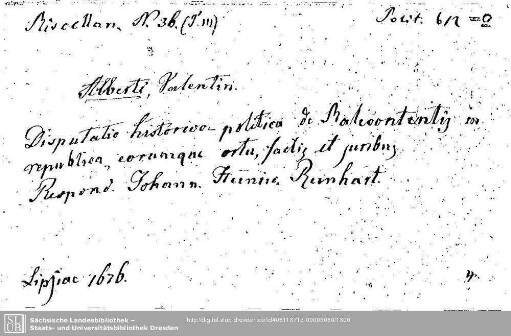 Miscellan. N. 36. (T. III)
Polit. 612 =
Alberti, Valentin.
Disputatio historico-politica de Malcontentis in
republica, eorumque ortu, factis et juribus
Respond. Johann. Henric. Reinhart.
Lipsiae 1676.
4.
Sächsische Landesbibliothek –
Staats- und Universitätsbibliothek Dresden